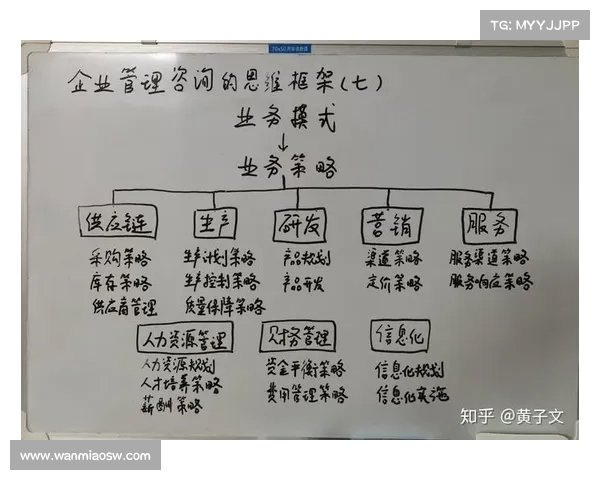 TG: MYYJJPP
企业管理咨询的思维框架(七)
业务模式
↓
业务策略
供应链 生产 研发 营销 服务
采购策略 生产计划策略 产品规划 渠道策略 服务渠道策略
库存策略 生产控制策略 产品开发 定价策略 服务响应策略
供应商管理 质量保障策略
人力资源管理 财务管理 信息化
人力资源规划 资金平衡策略 信息化规划
人才培养策略 费用管理策略 信息化实施
薪酬策略
知乎 @黄子文
www.wanmiaosw.com